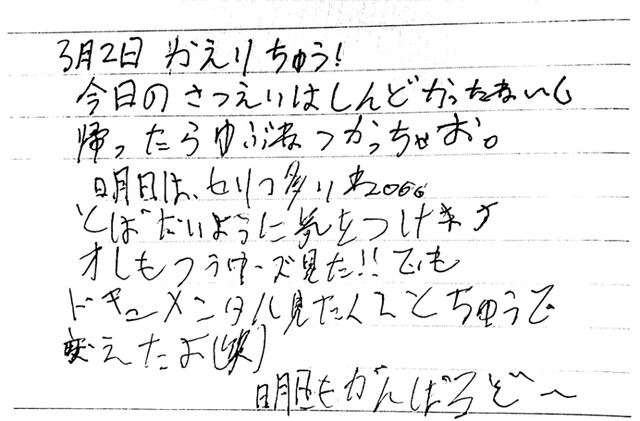 3月2日 かえりちゅう!
今日のさつえいはしんどかったねぃ
帰ったらゆぶねつかっちゃお。
明日は、セリフ多いね
とばさないように気をつけます
オレもフラワーズ見た!! でも
ドキュメンタル見たくてとちゅうで
変えたよ(笑)
明日もがんばろぞ〜